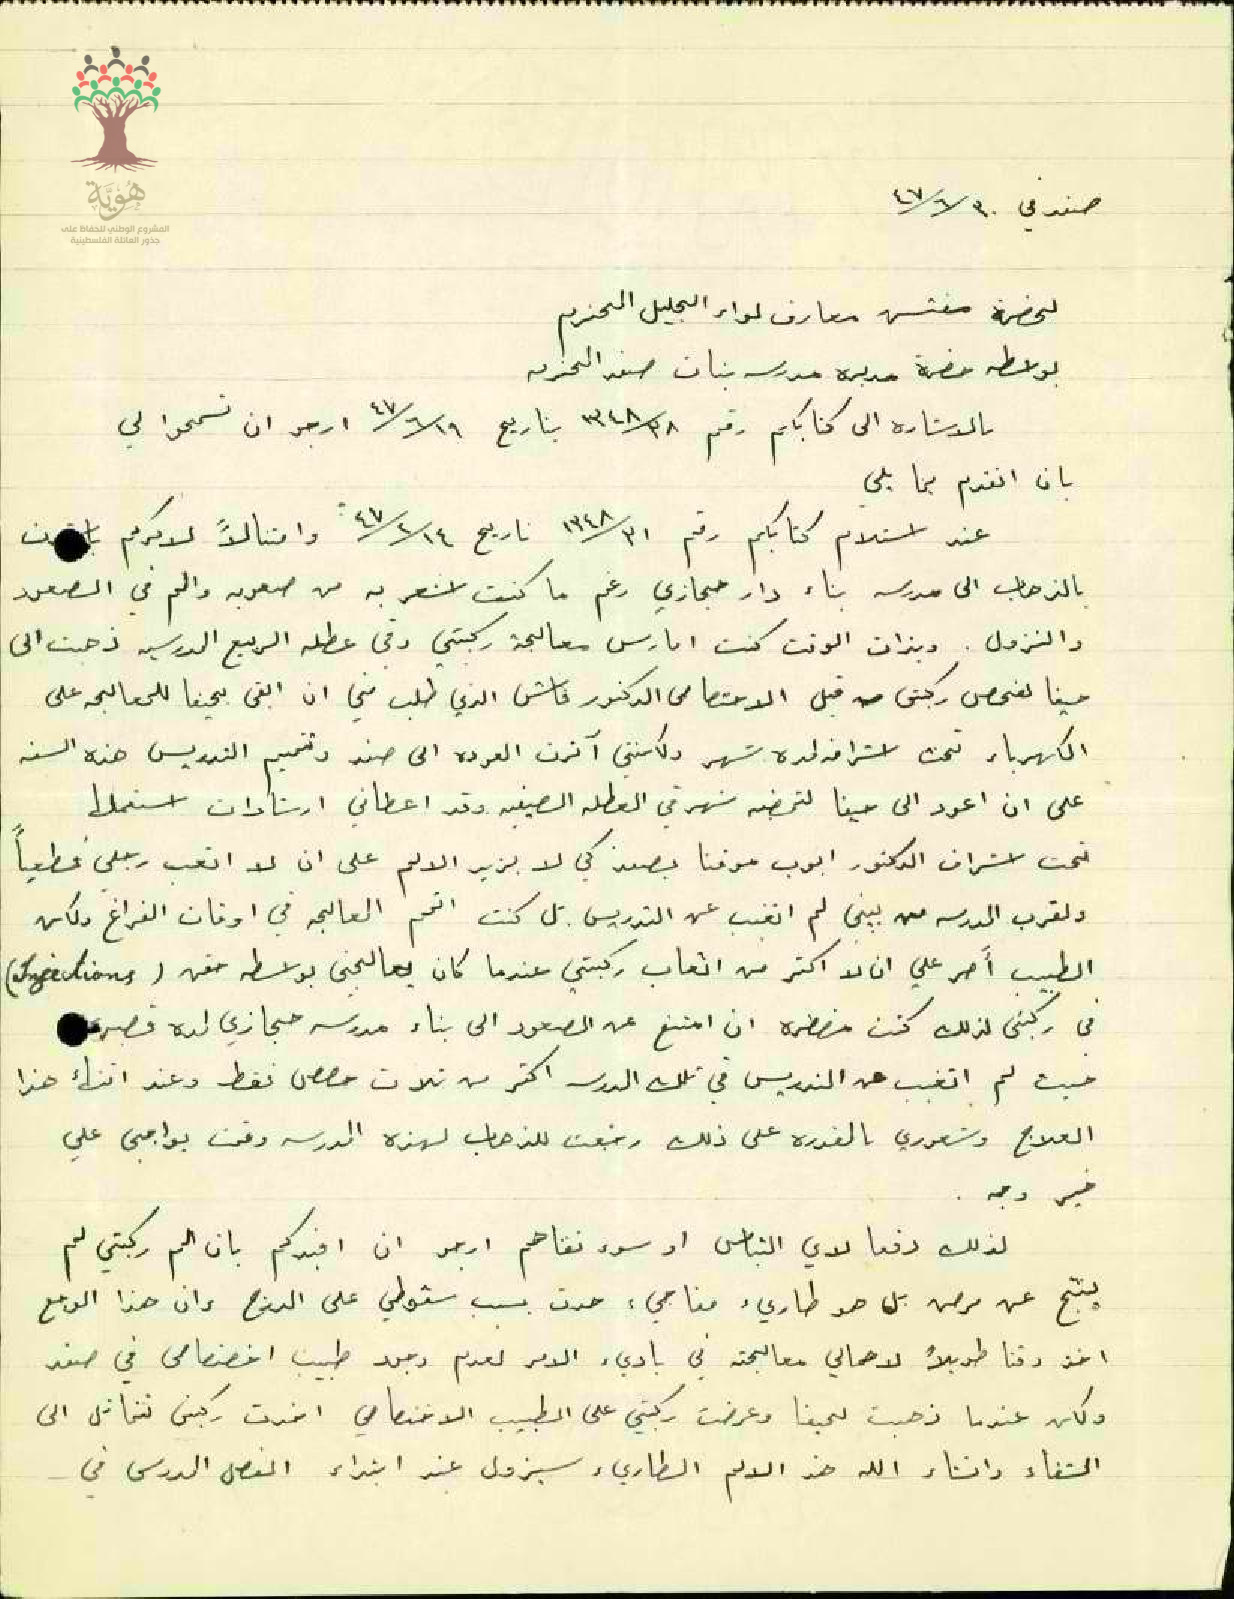 هُوِيَّة
المشروع الوطني للحفاظ على
جذور العائلة الفلسطينية
صفد في ٣٠/٦/٤٧
لحضرة مفتش معارف لواء الجليل المحترم
بواسطه حضرة مديره مدرسه بنات صفد المحترمه
بالاشاره الى كتابكم رقم ٣٣٤٨/٣٨ بتاريخ ١٩/٦/٤٧ ارجو ان تسمحوا لي
بان اتقدم بما يلي
عند استلام كتابكم رقم ١٣٤٨/٣١ تاريخ ١٤/٢/٤٧ وامتثالاً لامركم
بالذهاب الى مدرسه بناء دار حجازي رغم ما كنت اشعر به من صعوبه والم في الصعود
والنزول . وبذات الوقت كنت امارس معالجة ركبتي وفي عطله الربيع المدرسيه ذهبت الى
حيفا لفحص ركبتي من قبل الاختصاصي الدكتور فاش الذي طلب مني ان ابقى بحيفا للمعالجه على
الكهرباء تحت اشرافه لمدة شهر ولكنني آثرت العوده الى صفد وتتميم التدريس هذه السنه
على ان اعود الى حيفا لتمضيه شهر في العطله الصيفيه وقد اعطاني ارشادات استعملها
تحت اشراف الدكتور ايوب موقتا بصفد كي لا يزيد الالم على ان لا اتعب رجلي قطعياً
ولقرب المدرسه من بيتي لم اتغيب عن التدريس بل كنت اتمم المعالجه في اوقات الفراغ ولكن
الطبيب أصر علي ان لا اكثر من اتعاب ركبتي عندما كان يعالجني بواسطه حقن (Injections)
في ركبتي لذلك كنت مضطره ان امتنع عن الصعود الى بناء مدرسه حجازي لمدة قصيره
حيث لم اتغيب عن التدريس في تلك المدرسه اكثر من ثلاث حصص فقط وعند انتهاء هذا
العلاج وشعوري بالقدره على ذلك رجعت للذهاب لهذه المدرسه وقمت بواجبي علي
خير وجه .
لذلك دفعا لاي التباس او سوء تفاهم ارجو ان افيدكم بان الم ركبتي لم
ينتج عن مرض بل هو طاريء مفاجيء حدث بسبب سقوطي على الدرج وان هذا الوجع
اخذ وقتا طويلاً لاهمالي معالجته في باديء الامر لعدم وجود طبيب اختصاصي في صفد
ولكن عندما ذهبت لحيفا وعرضت ركبتي على الطبيب الاختصاصي اخذت ركبتي تتماثل الى
الشفاء وانشاء الله هذ الالم الطاريء سيزول عند ابتداء الفصل المدرسي في